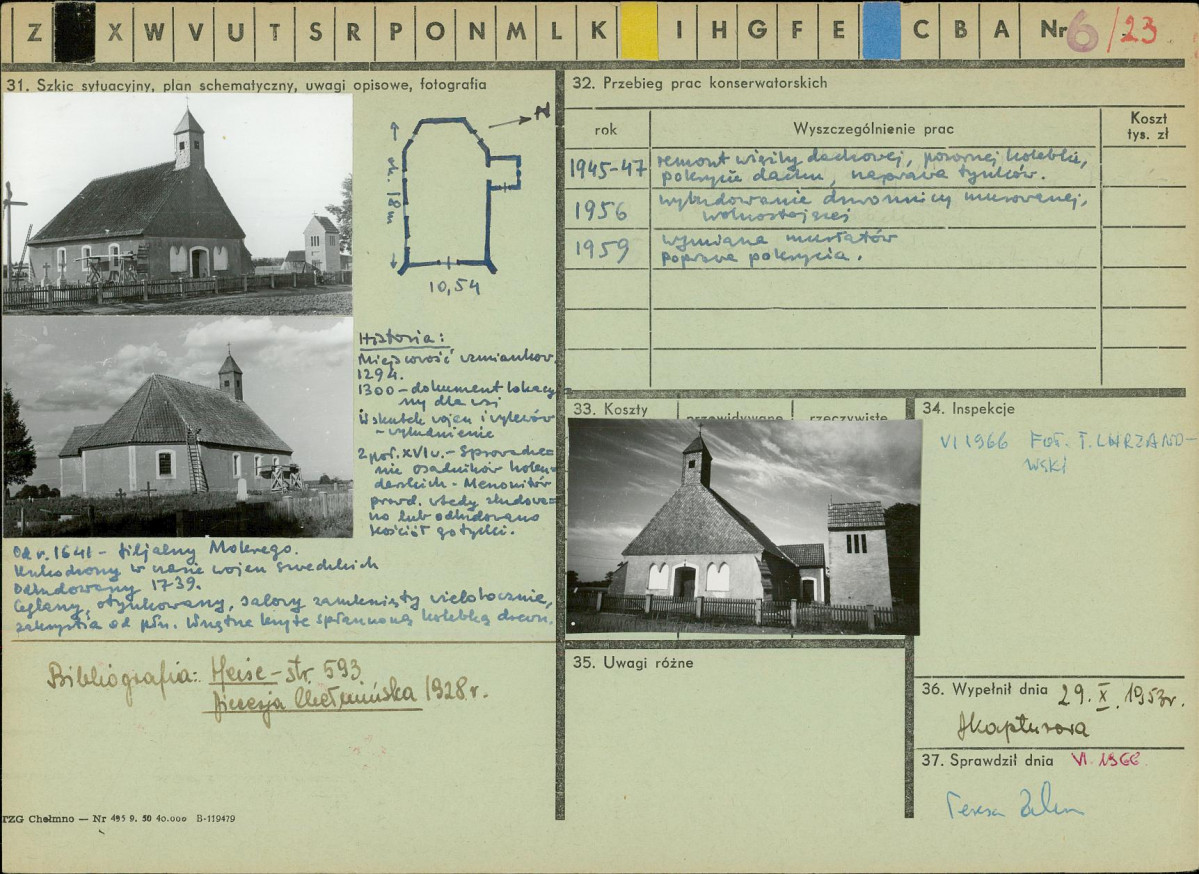 Z X W V U T S R P O N M L K I H G F E C B A Nr 6/23
31. Szkic sytuacyjny, plan schematyczny, uwagi opisowe, fotografia
N
ok. 18 m
10,54
Historia:
Miejscowość wzmiankow.
1294.
1300 – dokument lokacyj
ny dla wsi
Wskutek wojen i wylewów
– wyludnienie
2 poł. XVI w. – Sprowadze-
nie osadników holen-
derskich – Menonitów
prawd. wtedy zbudowa-
no lub odbudowano
kościół gotycki.
Od r. 1641 – filjalny Mokrego.
Uszkodzony w czasie wojen szwedzkich
Odbudowany 1739.
Ceglany, otynkowany, salowy zamknięty wielobocznie,
zakrystia od płn. Wnętrze kryte spłaszczoną kolebką drewn.
Bibliografia: Heise – str. 593
Diecezja Chełmińska 1928 r.
TZG Chełmno — Nr 495 9. 50 40.000 B-119479
32. Przebieg prac konserwatorskich
rok Wyszczególnienie prac Koszt tys. zł
1945-47 remont więźby dachowej, pozornej kolebki,
pokrycie dachu, naprawa tynków.
1956 wybudowanie dzwonnicy murowanej,
wolnostojącej
1959 wymiana murłatów
poprawa pokrycia.
33. Koszty przewidywane rzeczywiste
34. Inspekcje
VI 1966 Fot. T. CHRZANO-
WSKI
35. Uwagi różne
36. Wypełnił dnia 29. X. 1953 r.
37. Sprawdził dnia VI. 1966
Teresa